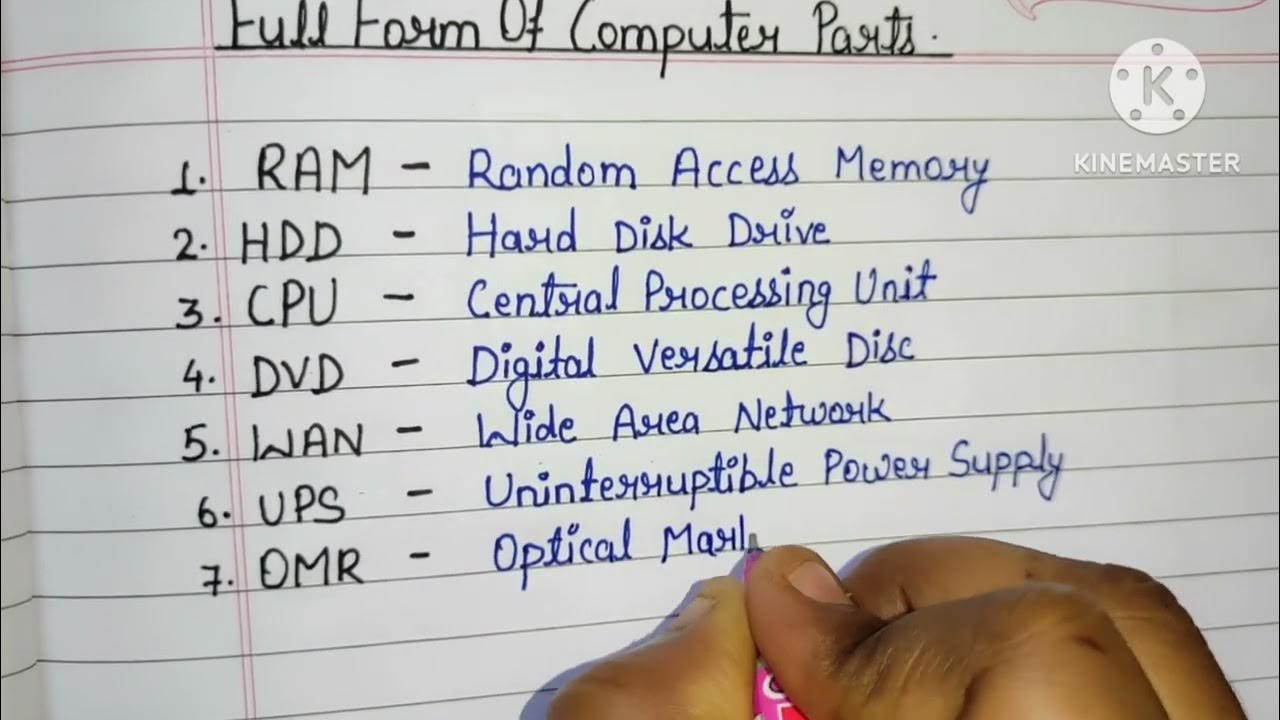 Full Form Of Computer Parts.
K
KINEMASTER
1. RAM - Random Access Memory
2. HDD - Hard Disk Drive
3. CPU - Central Processing Unit
4. DVD - Digital Versatile Disc
5. WAN - Wide Area Network
6. UPS - Uninterruptible Power Supply
7. OMR - Optical Mark